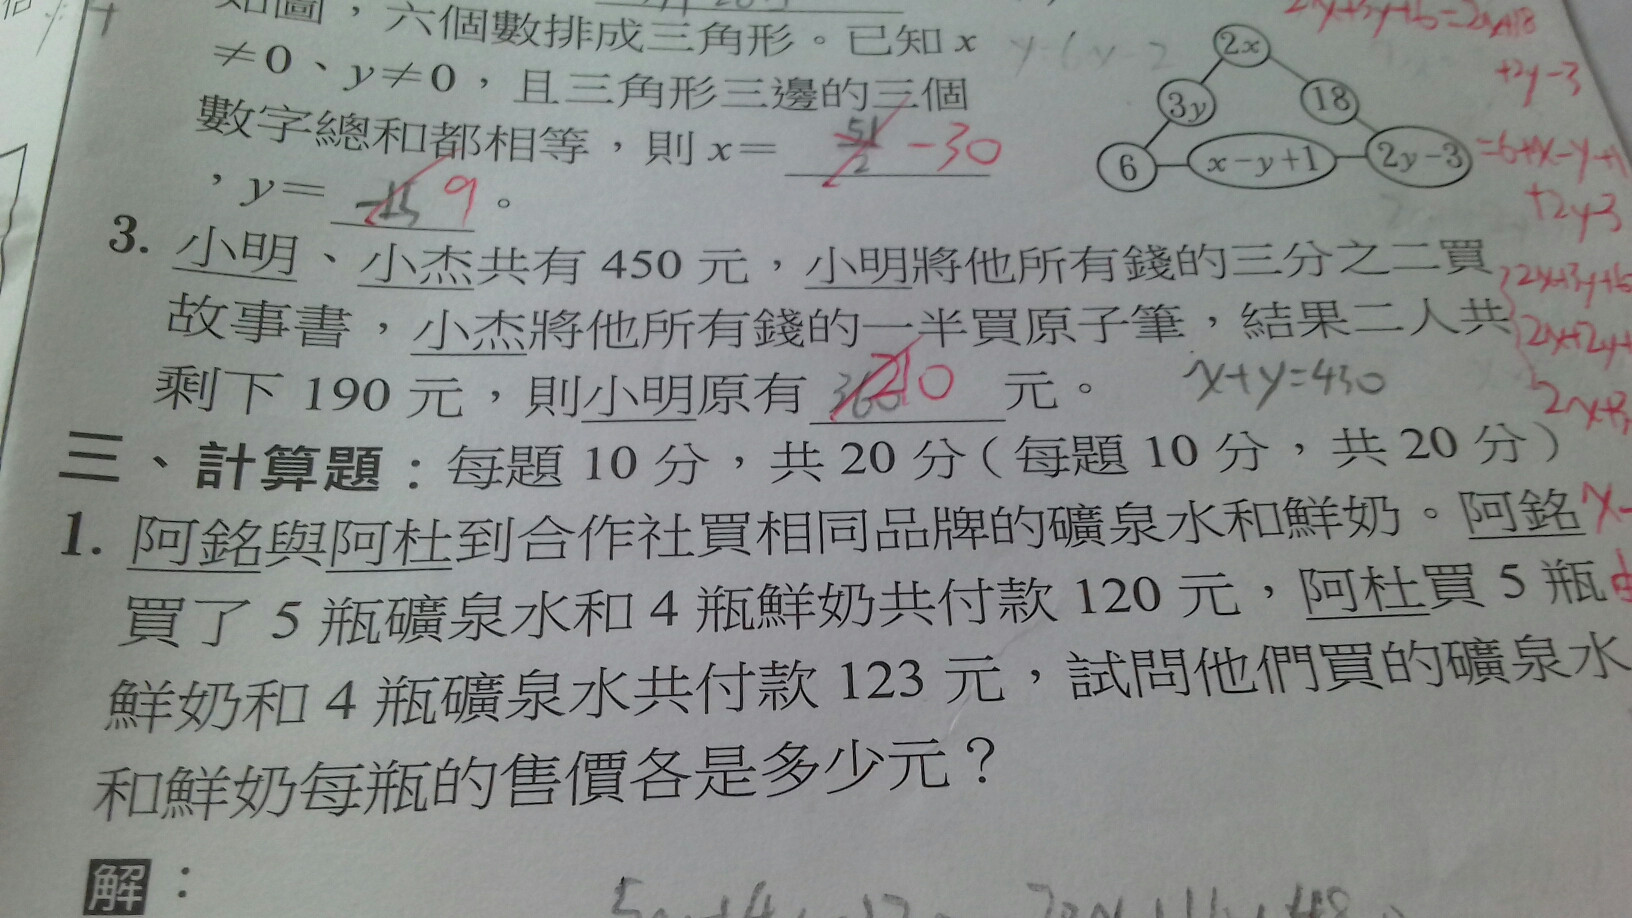 如圖，六個數排成三角形。已知 x
≠0、y≠0，且三角形三邊的三個
數字總和都相等，則 x= 51/2 -30
，y= -15 9 。
2x
3y
18
6
x－y＋1
2y－3
+2y-3
=6+x-y+1
+2y-3
3. 小明、小杰共有 450 元，小明將他所有錢的三分之二買
故事書，小杰將他所有錢的一半買原子筆，結果二人共
剩下 190 元，則小明原有 360 210 元。
x+y=450
三、計算題：每題 10 分，共 20 分（每題 10 分，共 20 分）
1. 阿銘與阿杜到合作社買相同品牌的礦泉水和鮮奶。阿銘
買了 5 瓶礦泉水和 4 瓶鮮奶共付款 120 元，阿杜買 5 瓶
鮮奶和 4 瓶礦泉水共付款 123 元，試問他們買的礦泉水
和鮮奶每瓶的售價各是多少元？
解：